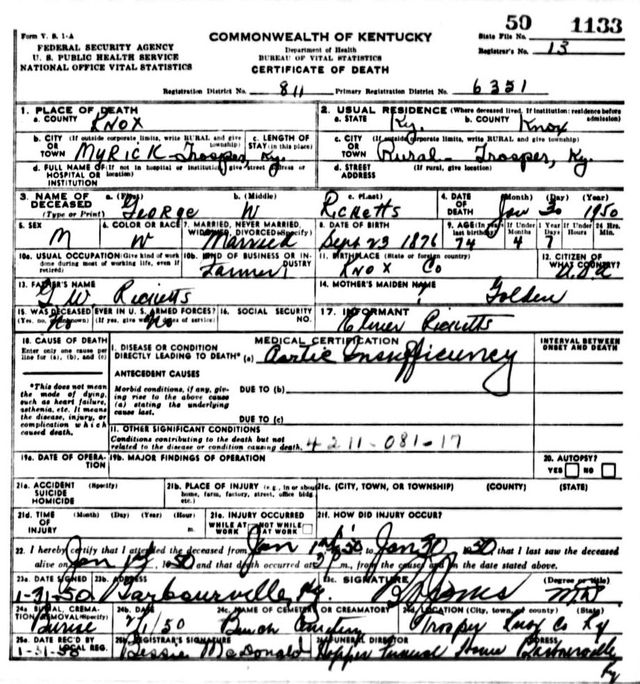 Form V. S. 1-A
FEDERAL SECURITY AGENCY
U. S. PUBLIC HEALTH SERVICE
NATIONAL OFFICE VITAL STATISTICS
COMMONWEALTH OF KENTUCKY
Department of Health
BUREAU OF VITAL STATISTICS
CERTIFICATE OF DEATH
50 1133
State File No.
Registrar's No. 13
Registration District No. 811 Primary Registration District No. 6351
1. PLACE OF DEATH
a. COUNTY Knox
2. USUAL RESIDENCE (Where deceased lived. If institution: residence before admission)
a. STATE Ky. b. COUNTY Knox
b. CITY (If outside corporate limits, write RURAL and give township) OR TOWN Myrick-Trosper, Ky.
c. LENGTH OF STAY (in this place)
c. CITY (If outside corporate limits, write RURAL and give township) OR TOWN Rural- Trosper, Ky.
d. FULL NAME OF (If not in hospital or institution, give street address or location) HOSPITAL OR INSTITUTION
d. STREET ADDRESS (If rural, give location)
3. NAME OF DECEASED (Type or Print) a. (First) George b. (Middle) W c. (Last) Ricketts
4. DATE OF DEATH (Month) (Day) (Year) Jan 30 1950
5. SEX M
6. COLOR OR RACE W
7. MARRIED, NEVER MARRIED, WIDOWED, DIVORCED (Specify) Married
8. DATE OF BIRTH Sept 23 1876
9. AGE (In years last birthday) 74 If Under 1 Year Months 4 Days 7 If Under 24 Hrs. Hours Min.
10a. USUAL OCCUPATION (Give kind of work done during most of working life, even if retired)
10b. KIND OF BUSINESS OR INDUSTRY Farmer
11. BIRTHPLACE (State or foreign country) Knox Co
12. CITIZEN OF WHAT COUNTRY?
13. FATHER'S NAME G W Ricketts
14. MOTHER'S MAIDEN NAME ? Golden
15. WAS DECEASED EVER IN U. S. ARMED FORCES? (Yes, no, or unknown) No (If yes, give war or dates of service) No
16. SOCIAL SECURITY NO.
17. INFORMANT Elmer Ricketts
18. CAUSE OF DEATH
Enter only one cause per line for (a), (b), and (c)
*This does not mean the mode of dying, such as heart failure, asthenia, etc. It means the disease, injury, or complication which caused death.
MEDICAL CERTIFICATION
INTERVAL BETWEEN ONSET AND DEATH
I. DISEASE OR CONDITION DIRECTLY LEADING TO DEATH* (a) Aortic Insufficiency
ANTECEDENT CAUSES
Morbid conditions, if any, giving rise to the above cause (a) stating the underlying cause last.
DUE TO (b)
DUE TO (c)
II. OTHER SIGNIFICANT CONDITIONS
Conditions contributing to the death but not related to the disease or condition causing death. 4211-081-17
19a. DATE OF OPERATION
19b. MAJOR FINDINGS OF OPERATION
20. AUTOPSY? YES NO
21a. ACCIDENT SUICIDE HOMICIDE (Specify)
21b. PLACE OF INJURY (e.g., in or about home, farm, factory, street, office bldg., etc.)
21c. (CITY, TOWN, OR TOWNSHIP) (COUNTY) (STATE)
21d. TIME OF INJURY (Month) (Day) (Year) (Hour) m.
21e. INJURY OCCURRED WHILE AT WORK NOT WHILE AT WORK
21f. HOW DID INJURY OCCUR?
22. I hereby certify that I attended the deceased from Jan 1, 1950 to Jan 30, 1950 that I last saw the deceased
alive on Jan 1950 and that death occurred at m., from the causes and on the date stated above.
23a. DATE SIGNED 1-31-50
23b. ADDRESS Barbourville, Ky.
23c. SIGNATURE Jones (Degree or title) MD
24a. BURIAL, CREMATION, REMOVAL (Specify) Burial
24b. DATE 2/1/50
24c. NAME OF CEMETERY OR CREAMATORY Cemetery
24d. LOCATION (City, town, or county) (State) Trosper Knox Co Ky
25a. DATE REC'D BY LOCAL REG. 1-31-50
25b. REGISTRAR'S SIGNATURE Bessie McDonald
26. FUNERAL DIRECTOR Hopper Funeral Home ADDRESS Barbourville Ky